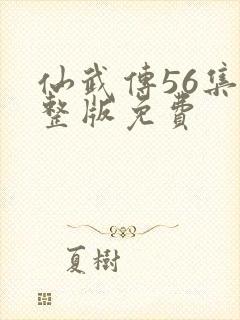 仙武傳56集
整版免費
夏樹